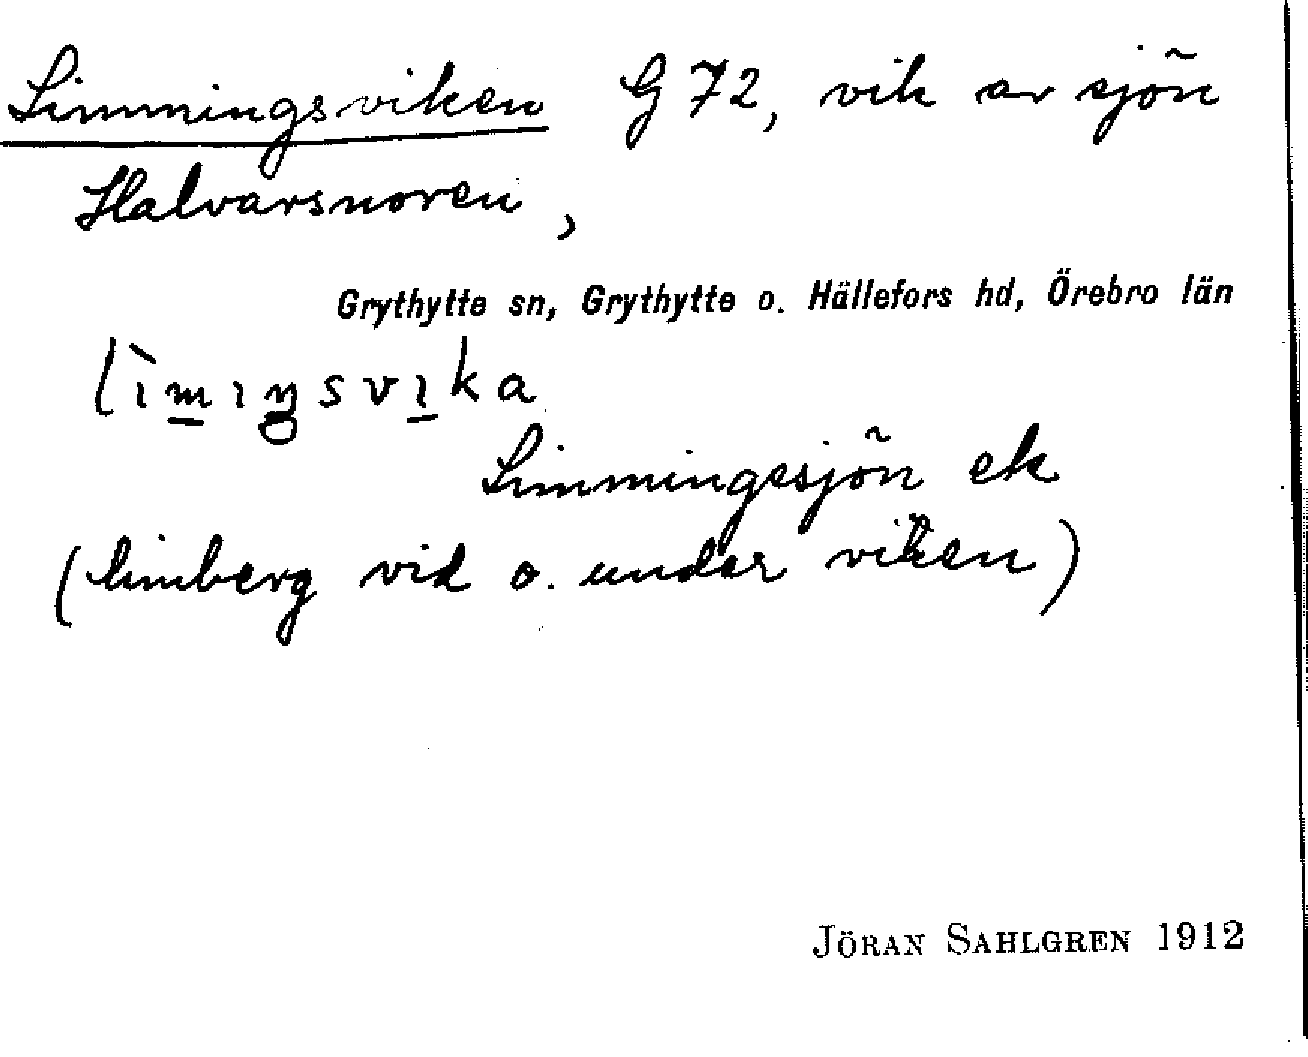 Limmingsviken G 72, vik av sjön
Halvarsnoren,
Grythytte sn, Grythytte o. Hällefors hd, Örebro län
lìmıŋsvıka
Limmingesjön ek
(limberg vid o. under viken)
JÖRAN SAHLGREN 1912